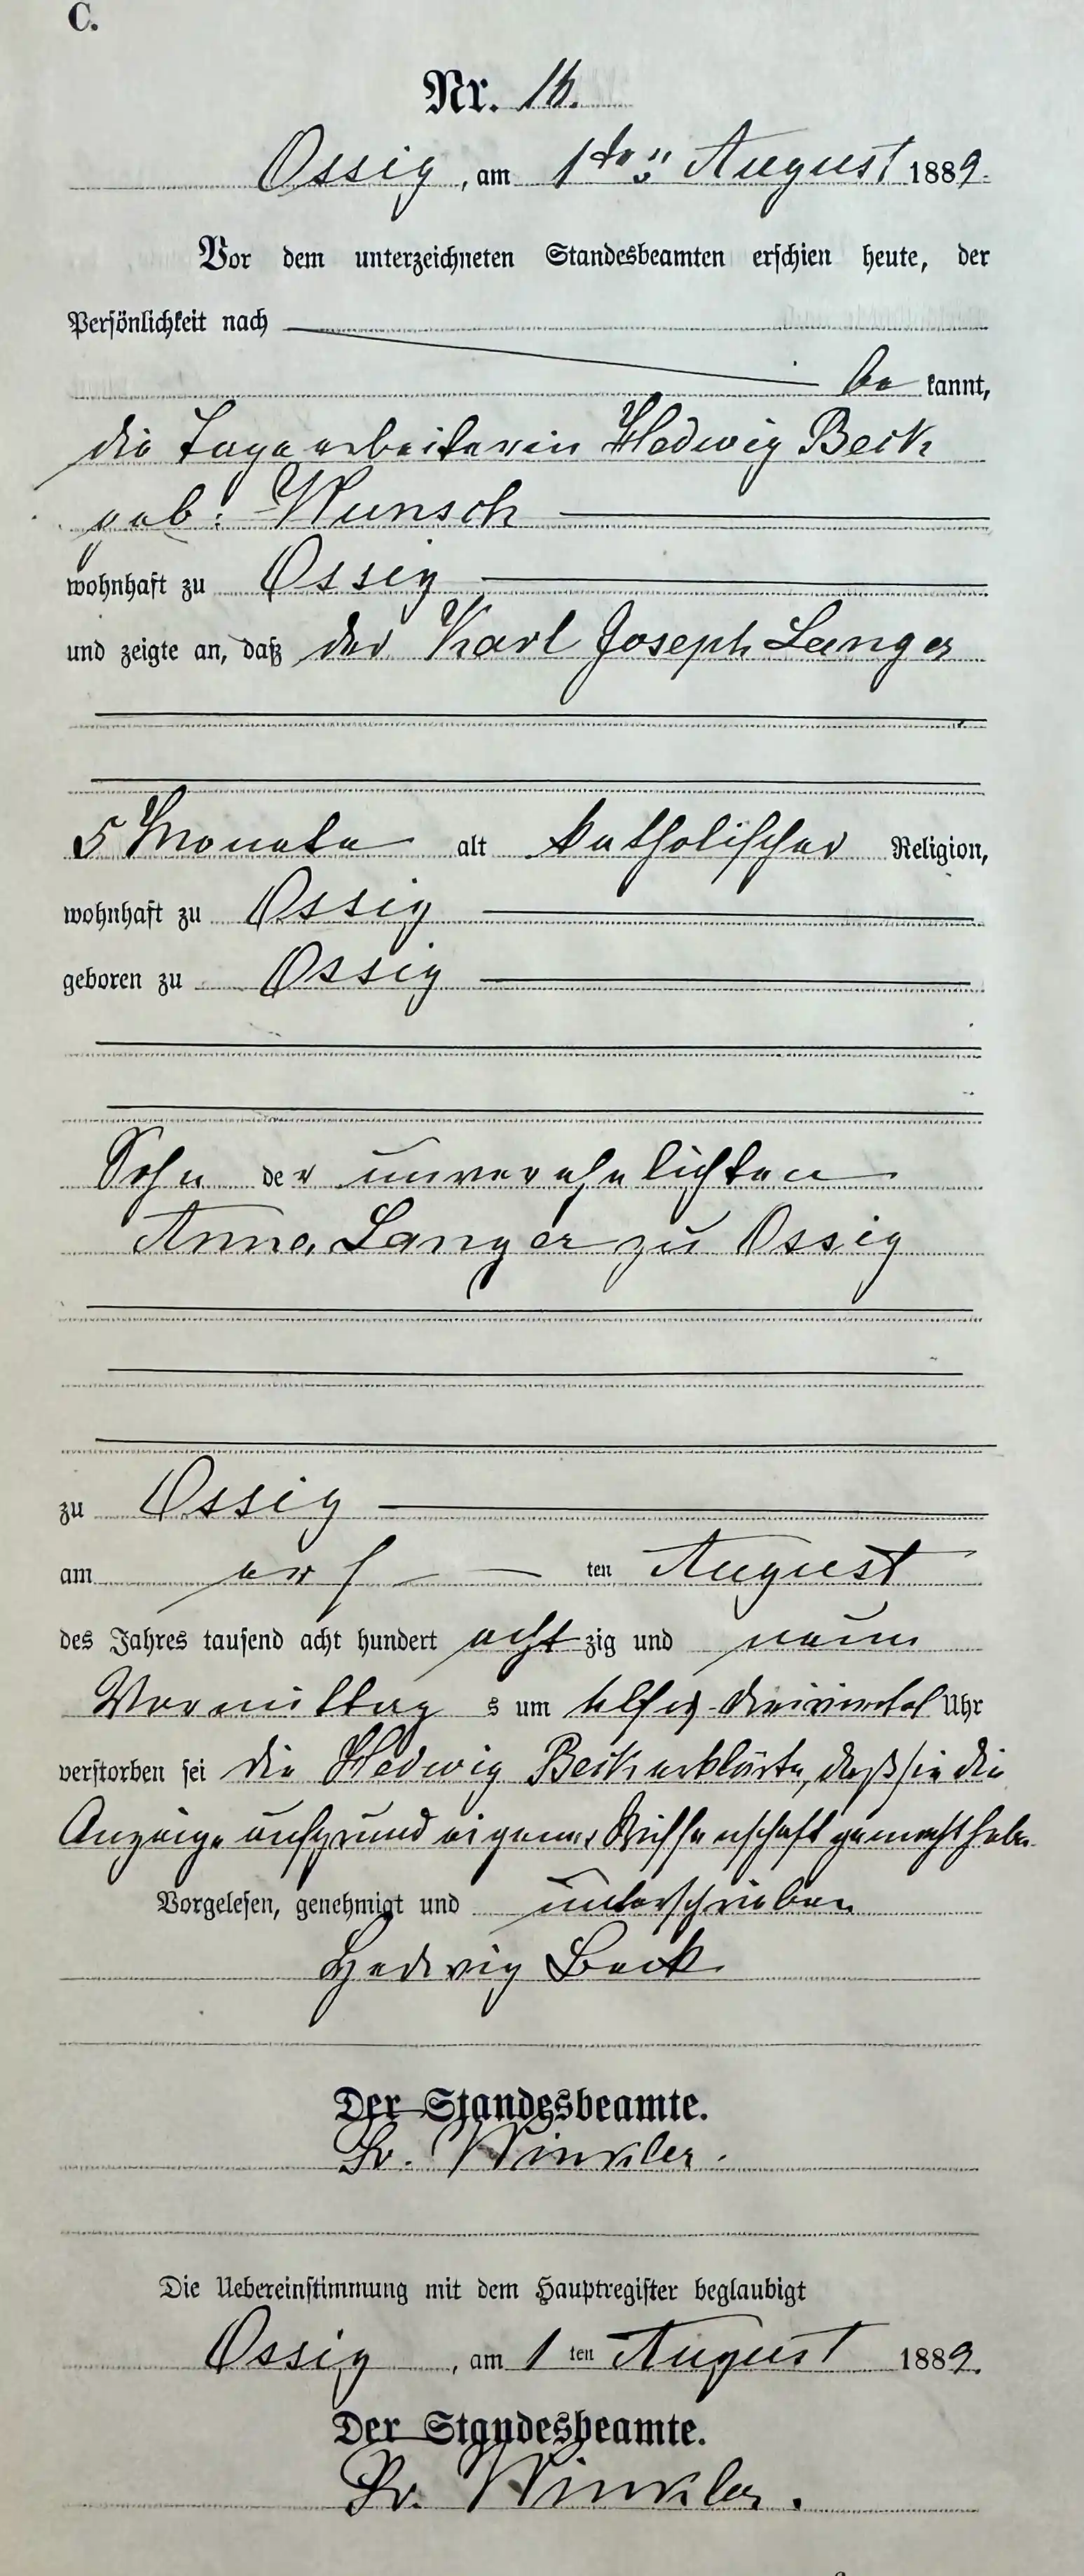 C.
Nr. 16.
Ossig, am 1ten August 1889.
Vor dem unterzeichneten Standesbeamten erschien heute, der
Persönlichkeit nach
be kannt,
die Tagearbeiterin Hedwig Beck
geb. Wunsch
wohnhaft zu Ossig
und zeigte an, daß der Karl Joseph Langer
5 Monate alt katholischer Religion,
wohnhaft zu Ossig
geboren zu Ossig
Sohn der unverehelichten
Anna Langer zu Ossig
zu Ossig
am ers ten August
des Jahres tausend acht hundert acht zig und neun
Vormittag s um dreiviertel Uhr
verstorben sei die Hedwig Beck erklärte, daß sie die
Anzeige aufgrund eigener Wissenschaft gemacht habe.
Vorgelesen, genehmigt und unterschrieben
Hedwig Beck
Der Standesbeamte.
Winkler.
Die Uebereinstimmung mit dem Hauptregister beglaubigt
Ossig, am 1 ten August 1889.
Der Standesbeamte.
Winkler.